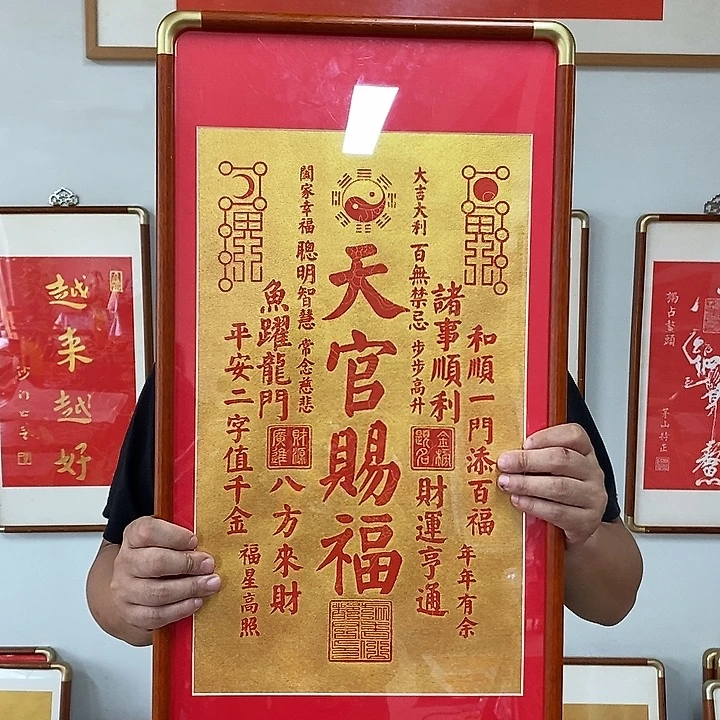 和順一門添百福
年年有余
諸事順利
金榜
題名
財運亨通
大吉大利
百無禁忌
步步高升
天官賜福
闔家幸福
聰明智慧
常念慈悲
魚躍龍門
財源
廣進
八方來財
平安二字值千金
福星高照
越来越好
獨占鰲頭